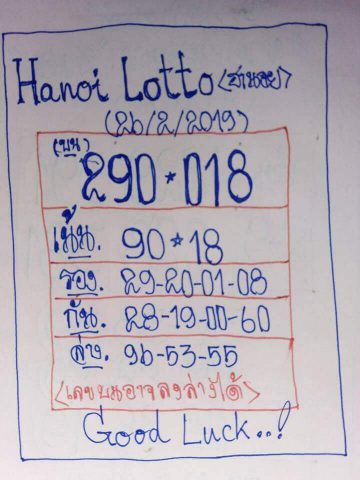 Hanoi Lotto <ฮานอย>
(26/2/2019)
(บน)
290*018
เน้น. 90*18
รอง. 29-20-01-08
กัน. 28-19-00-60
ล่าง. 96-53-55
<เลขบนอาจลงล่างได้>
Good Luck..!